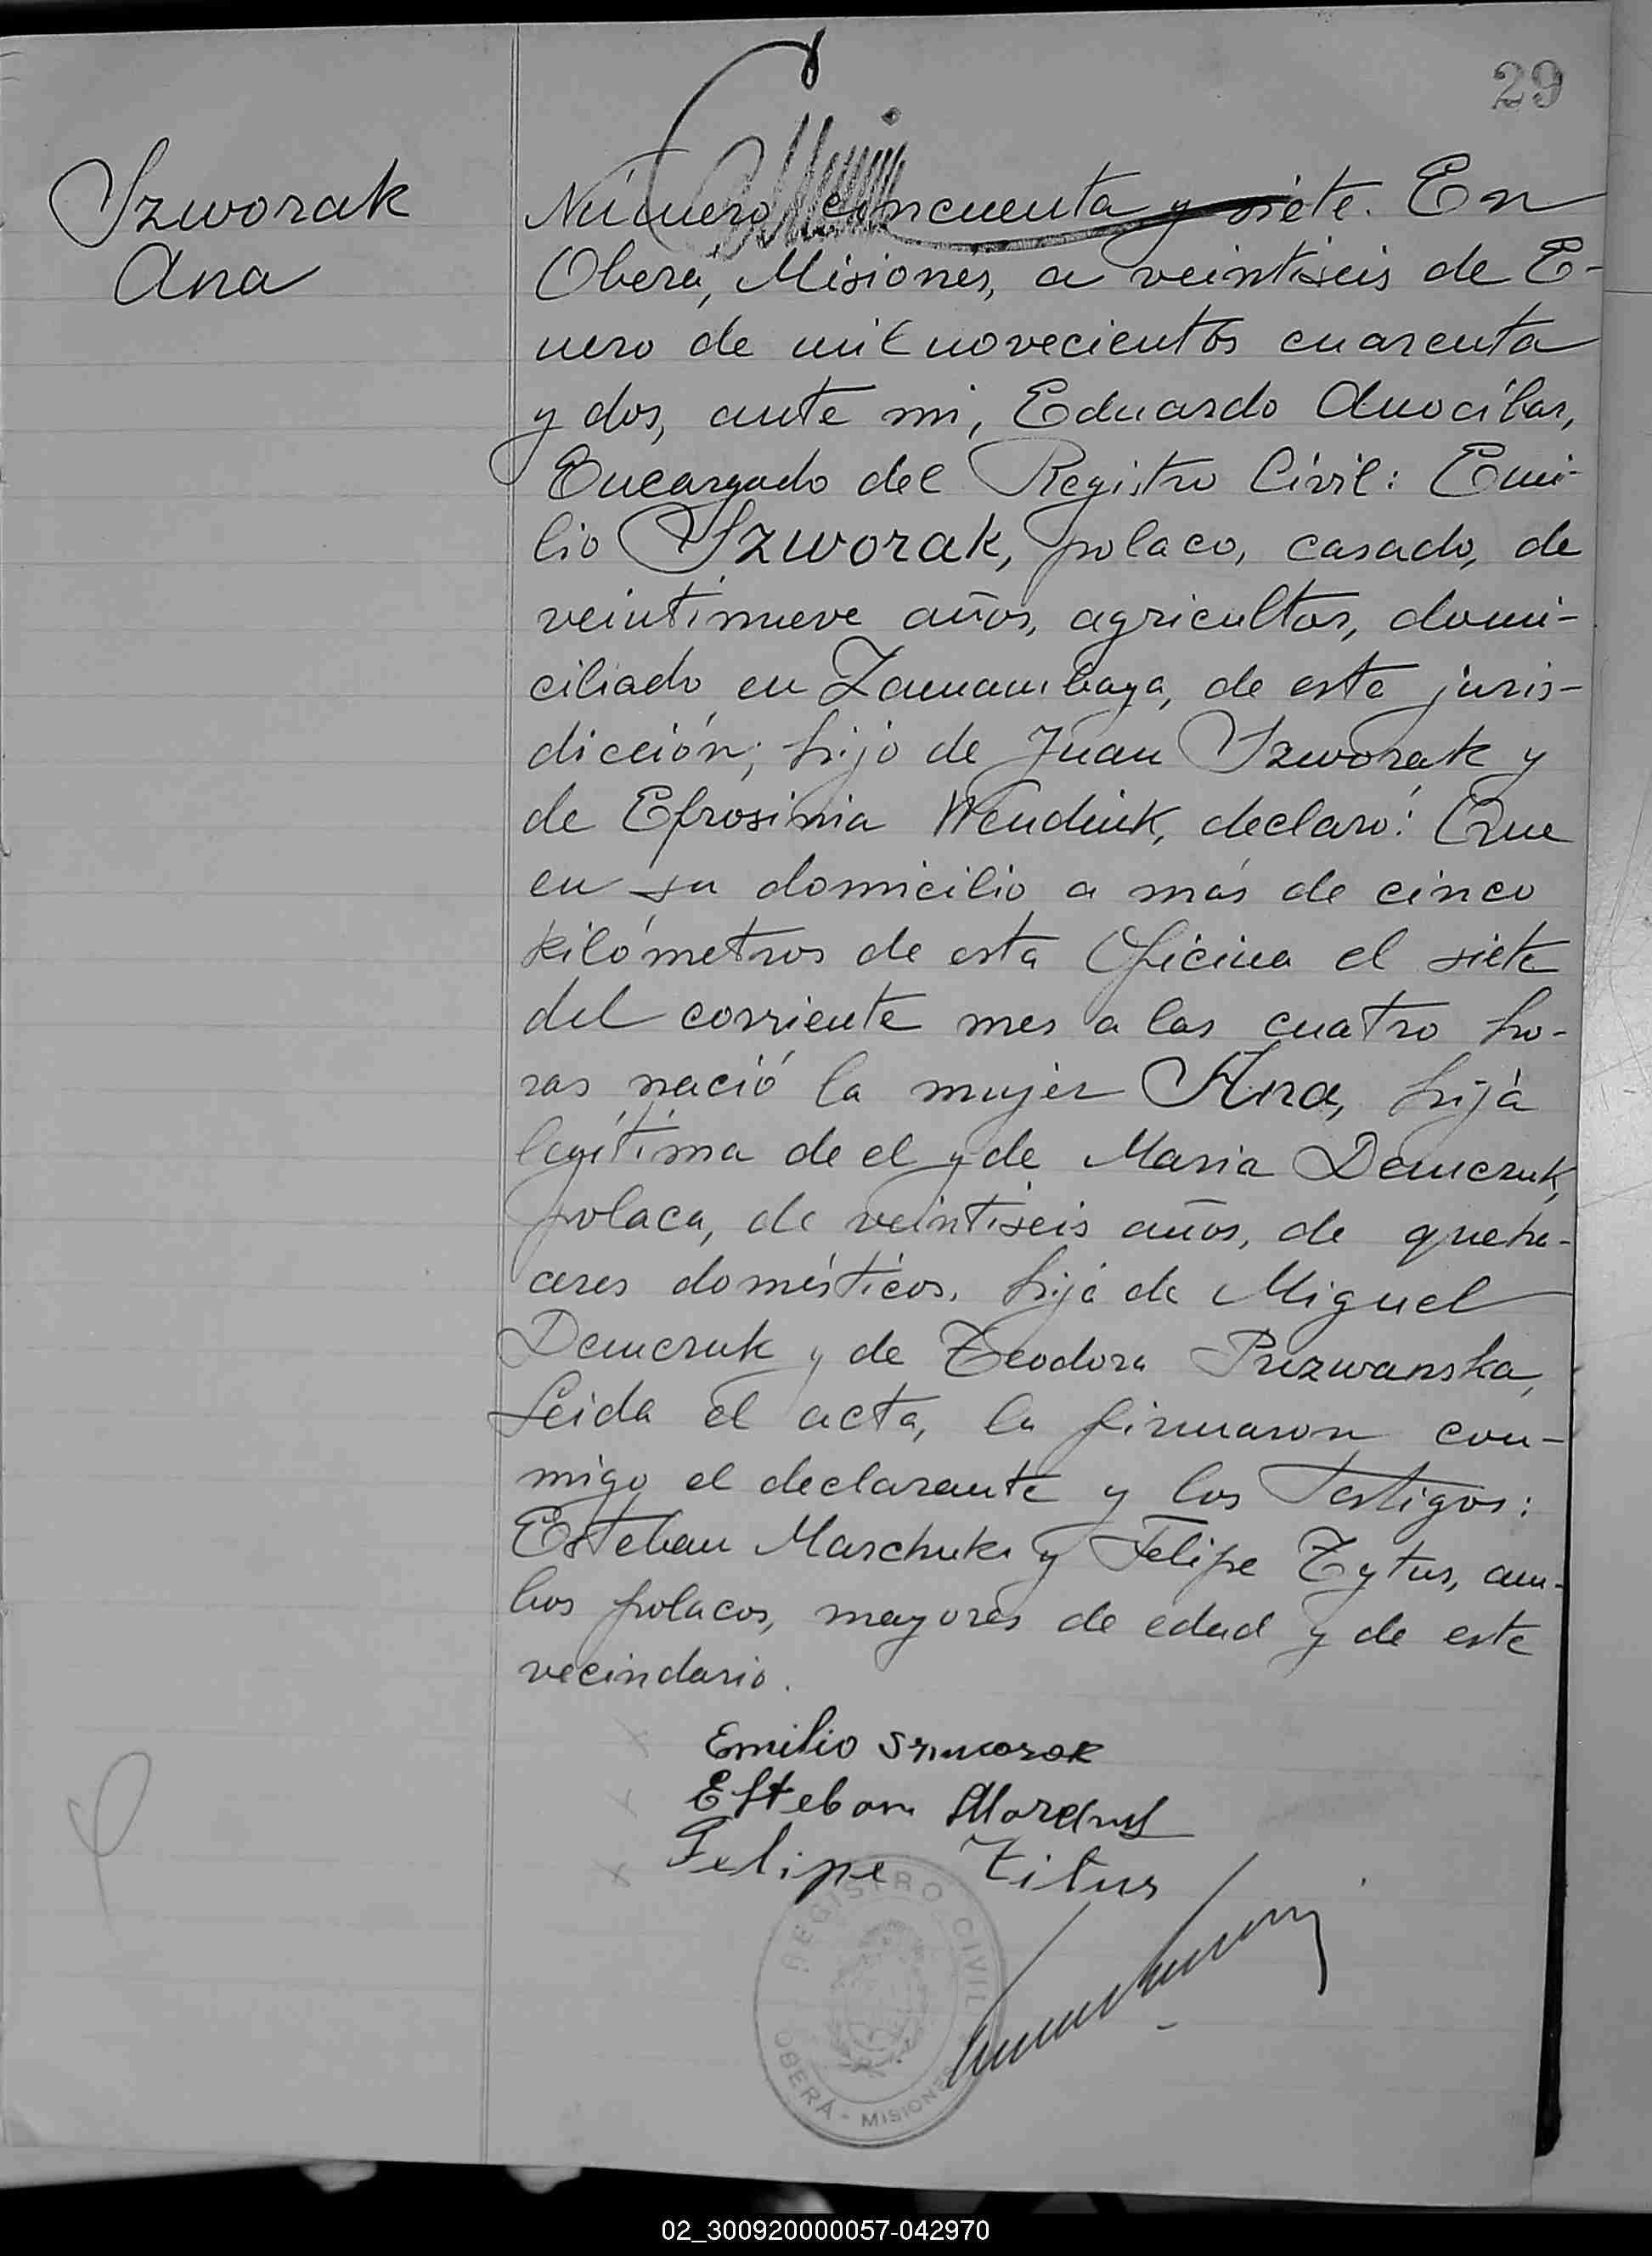 29
Szworak
Ana
Número cincuenta y siete. En
Oberá, Misiones, a veintiseis de E-
nero de mil novecientos cuarenta
y dos, ante mi, Eduardo Anocíbar,
Encargado del Registro Civil: Emi-
lio Szworak, polaco, casado, de
veintinueve años, agricultor, domi-
ciliado en Zamambaya, de esta juris-
dicción; hijo de Juan Szworak y
de Efrosinia Wendiuk, declaró: Que
en su domicilio a más de cinco
kilómetros de esta Oficina el siete
del corriente mes a las cuatro ho-
ras nació la mujer Ana, hija
legítima de el y de Maria Demczuk,
polaca, de veintiseis años, de queha-
ceres domésticos, hija de Miguel
Demczuk y de Teodora Prizwanska,
Leida el acta, la firmaron con-
migo el declarante y los testigos:
Esteban Marchuk y Felipe Tytus, am-
bos polacos, mayores de edad y de este
vecindario.
Emilio Szworak
Esteban
Felipe Titus
REGISTRO CIVIL
OBERÁ - MISIONES
02_300920000057-042970